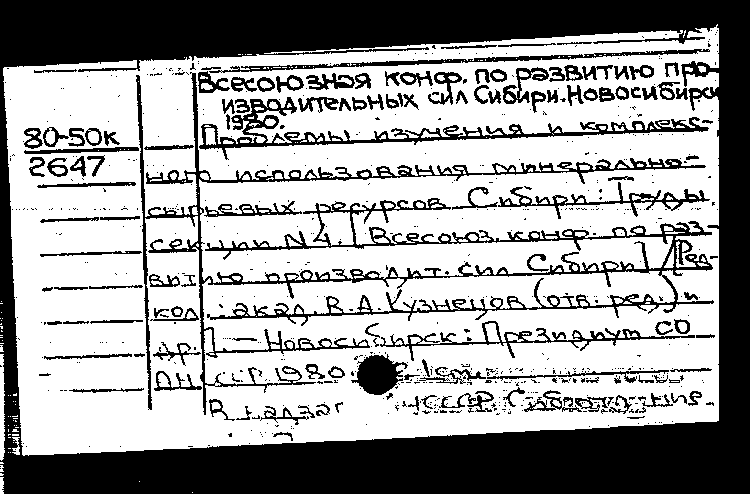 Всесоюзная конф. по развитию про-
изводительных сил Сибири. Новосибирск
1980.
80-50к
2647
Проблемы изучения и комплекс-
ного использования минерально-
сырьевых ресурсов Сибири: Труды
секции N4. [Всесоюз. конф. по раз-
витию производит. сил Сибири] / [Ред-
кол.: акад. В.А. Кузнецов (отв. ред.) и
др.]. - Новосибирск: Президиум СО
АН СССР, 1980.
В надзаг